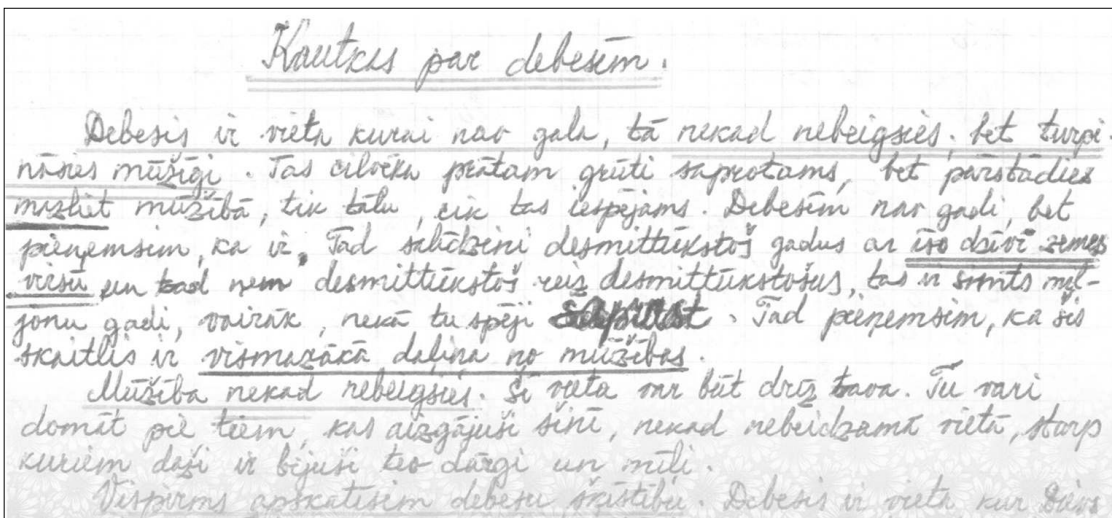 Kautkas par debesīm.
Debesis ir vieta kurai nav gala, tā nekad nebeigsies, bet turpi
nāsies mūžīgi. Tas cilvēka prātam grūti saprotams, bet pārstādies
mazliet mūžībā, tik tālu, cik tas iespējams. Debesīm nav gadi, bet
pieņemsim, ka ir. Tad salīdzini desmittūkstoš gadus ar īso dzīvi zemes
virsū un tad ņem desmittūkstoš reiz desmittūkstošus, tas ir simts mil-
jonu gadi, vairāk, nekā tu spēji saprast. Tad pieņemsim, ka šis
skaitlis ir vismazākā daļiņa no mūžības.
Mūžība nekad nebeigsies. Šī vieta var būt drīz tava. Tu vari
domāt pie tiem, kas aizgājuši šinī, nekad nebeidzamā vietā, starp
kuriem daži ir bijuši tev dārgi un mīļi.
Vispirms apskatīsim debesu šķīstību. Debesis ir vieta kur Dievs